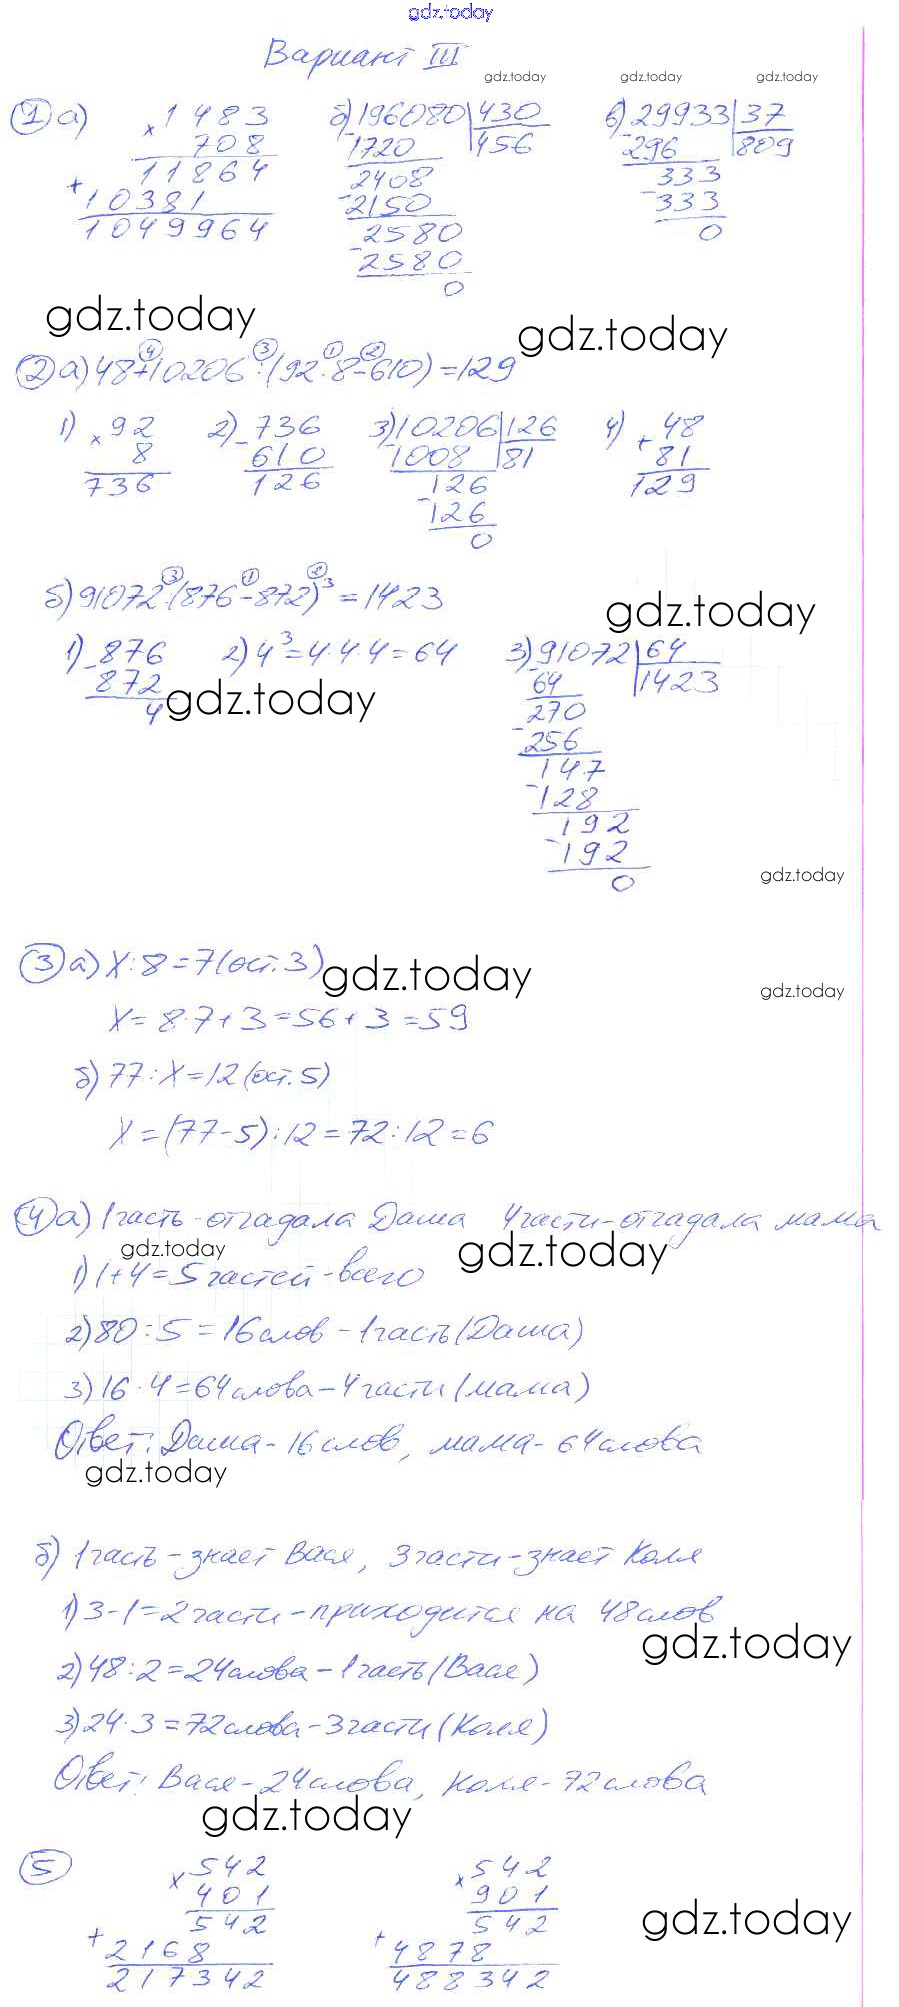 gdz.today
Вариант III
gdz.today gdz.today gdz.today
① а) × 1483 б) 196080 | 430 в) 29933 | 37
708 - 1720 456 - 296 809
11864 2408 333
+ 10381 - 2150 - 333
1049964 2580 0
- 2580
0
gdz.today gdz.today
② а) 48+10206:(92·8-610)=129
④ ③ ① ②
1) × 92 2) - 736 3) 10206 | 126 4) + 48
8 610 - 1008 81 81
736 126 126 129
- 126
0
б) 91072:(876-872)³=1423
③ ① ②
gdz.today
1) - 876 2) 4³=4·4·4=64 3) 91072 | 64
872 - 64 1423
4 270
gdz.today
- 256
147
- 128
192
- 192
0
gdz.today
③ а) х:8=7(ост.3)
gdz.today gdz.today
х=8·7+3=56+3=59
б) 77:х=12(ост.5)
х=(77-5):12=72:12=6
④ а) 1часть-отгадала Даша 4части-отгадала мама
gdz.today gdz.today
1) 1+4=5частей-всего
2) 80:5=16слов-1часть(Даша)
3) 16·4=64слова-4части(мама)
Ответ: Даша-16слов, мама-64слова
gdz.today
б) 1часть-знает Вася, 3части-знает Коля
1) 3-1=2части-приходится на 48слов
gdz.today
2) 48:2=24слова-1часть(Вася)
3) 24·3=72слова-3части(Коля)
Ответ: Вася-24слова, Коля-72слова
gdz.today
⑤ × 542 × 542
401 901
542 542
gdz.today
+ 2168 + 4878
217342 488342